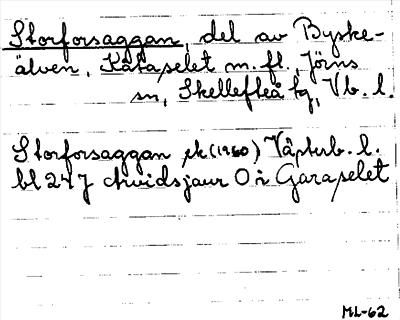 Storforsaggan, del av Byske-
älven, Kåtaselet m. fl., Jörns
sn, Skellefteå tg, Vb. l.
Storforsaggan ek (1960) Västerb. l.
bl 247 Arvidsjaur O i Garaselet
ML-62